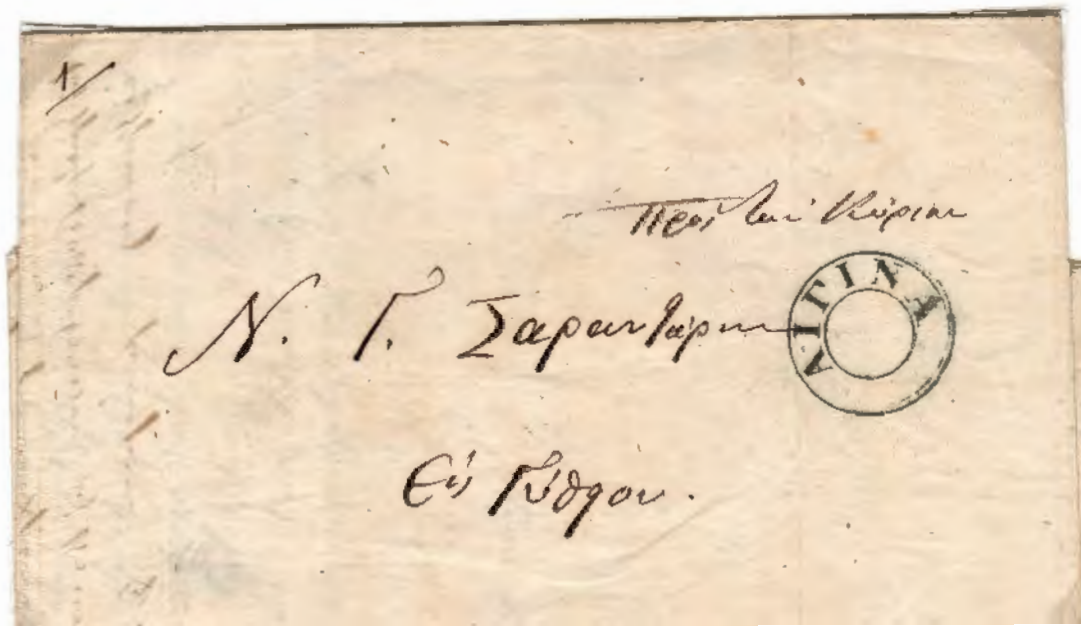 1/
Πρὸς τὸν Κύριον
Ν. Γ. Σαραντάρην
ΑΙΓΙΝΑ
Εἰς Γύθρον.